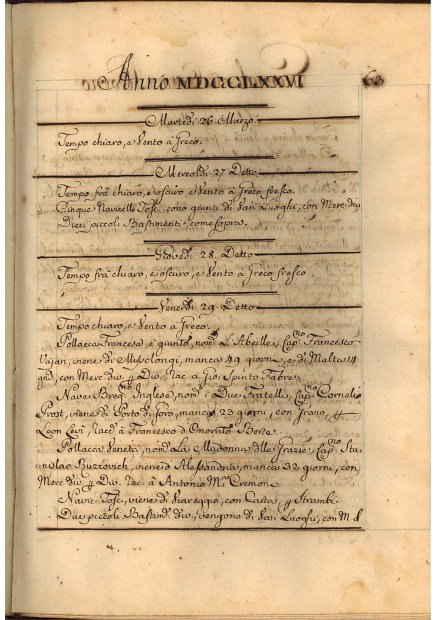 Anno MDCCLXXVI
63
Martedi 26. Marzo.
Tempo chiaro, e Vento à Greco.
Mercoldi 27 Detto
Tempo frà chiaro, e oscuro, e Vento à Greco fresco.
Cinque Navicelli Tosc. sono giunti di Vari Luoghi, con Merc. div.
Dieci piccoli Bastimenti, come sopra.
Giovedi 28. Detto
Tempo frà chiaro, e oscuro, e Vento à Greco fresco.
Venerdi 29. Detto
Tempo chiaro, e Vento à Greco.
Pollacca Francesa, è giunto, nom. L'Abeille, Cap.no Francesco
viene di Missolongi, manca 49 giorni, e di Malta 14
con Merc. div. p Div. Rac. à Gio: Spirito Fabre.
Nave Brig.no Inglese, nom. i Due Fratelli, Cap.no Cornelio
Prost, viene di Porto di fora, manca 23 giorni, con Grano, p
Leon Levi, Rac. à Francesco d'Onorato Berte.
Pollacca Veneta, nom. La Madonna dlle Grazie, Cap.no Sta-
nislao Buzzovich, viene di Alessandria, manca 32 giorni, con
Merc. div. p Div. Rac. à Antonio M.a Cremon.
Navic. Tosc. viene di Viareggio, con Carta, p Strambi.
Due piccoli Bastim. div. vengono di Vari Luoghi, con M. d